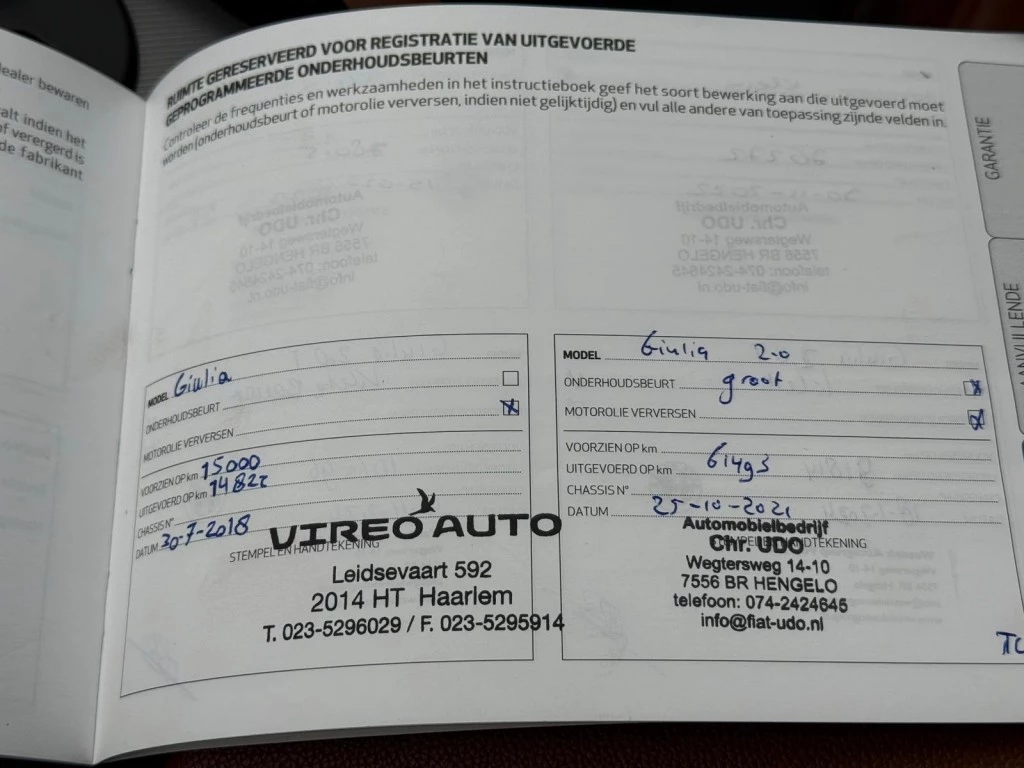 ealer bewaren
alt indien het
of verergerd is
de fabrikant
RUIMTE GERESERVEERD VOOR REGISTRATIE VAN UITGEVOERDE
GEPROGRAMMEERDE ONDERHOUDSBEURTEN
Controleer de frequenties en werkzaamheden in het instructieboek geef het soort bewerking aan die uitgevoerd moet
worden (onderhoudsbeurt of motorolie verversen, indien niet gelijktijdig) en vul alle andere van toepassing zijnde velden in.
GARANTIE
MODEL Giulia
ONDERHOUDSBEURT
MOTOROLIE VERVERSEN
VOORZIEN OP km 15000
UITGEVOERD OP km 14822
CHASSIS N°
DATUM 30-7-2018
STEMPEL EN HANDTEKENING
VIREO AUTO
Leidsevaart 592
2014 HT Haarlem
T. 023-5296029 / F. 023-5295914
MODEL Giulia 2.0
ONDERHOUDSBEURT groot
MOTOROLIE VERVERSEN
VOORZIEN OP km
UITGEVOERD OP km 61493
CHASSIS N°
DATUM 25-10-2021
Automobielbedrijf
Chr. UDO
Wegtersweg 14-10
7556 BR HENGELO
telefoon: 074-2424645
info@fiat-udo.nl